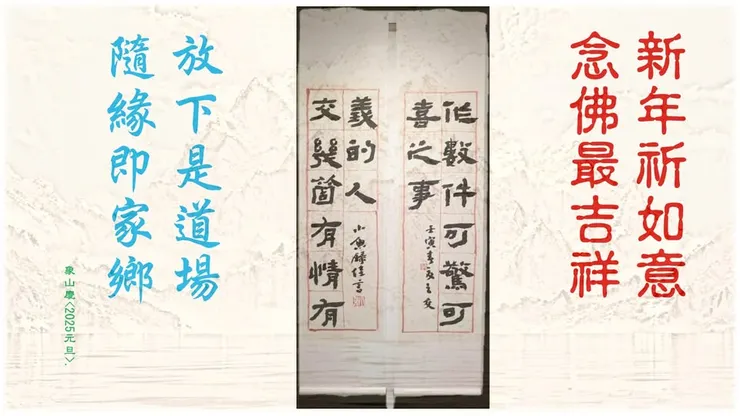 新年祈如意
念佛最吉祥
作數件可驚可
喜之事
壬寅春夏之交
交幾箇有情有
義的人
錄佳言
放下是道場
隨緣即家鄉
象山慶<2025元旦>.